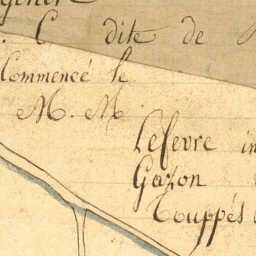 C dite de
Commencé le
M. M.
Lefevre in
Gazon
Couppés